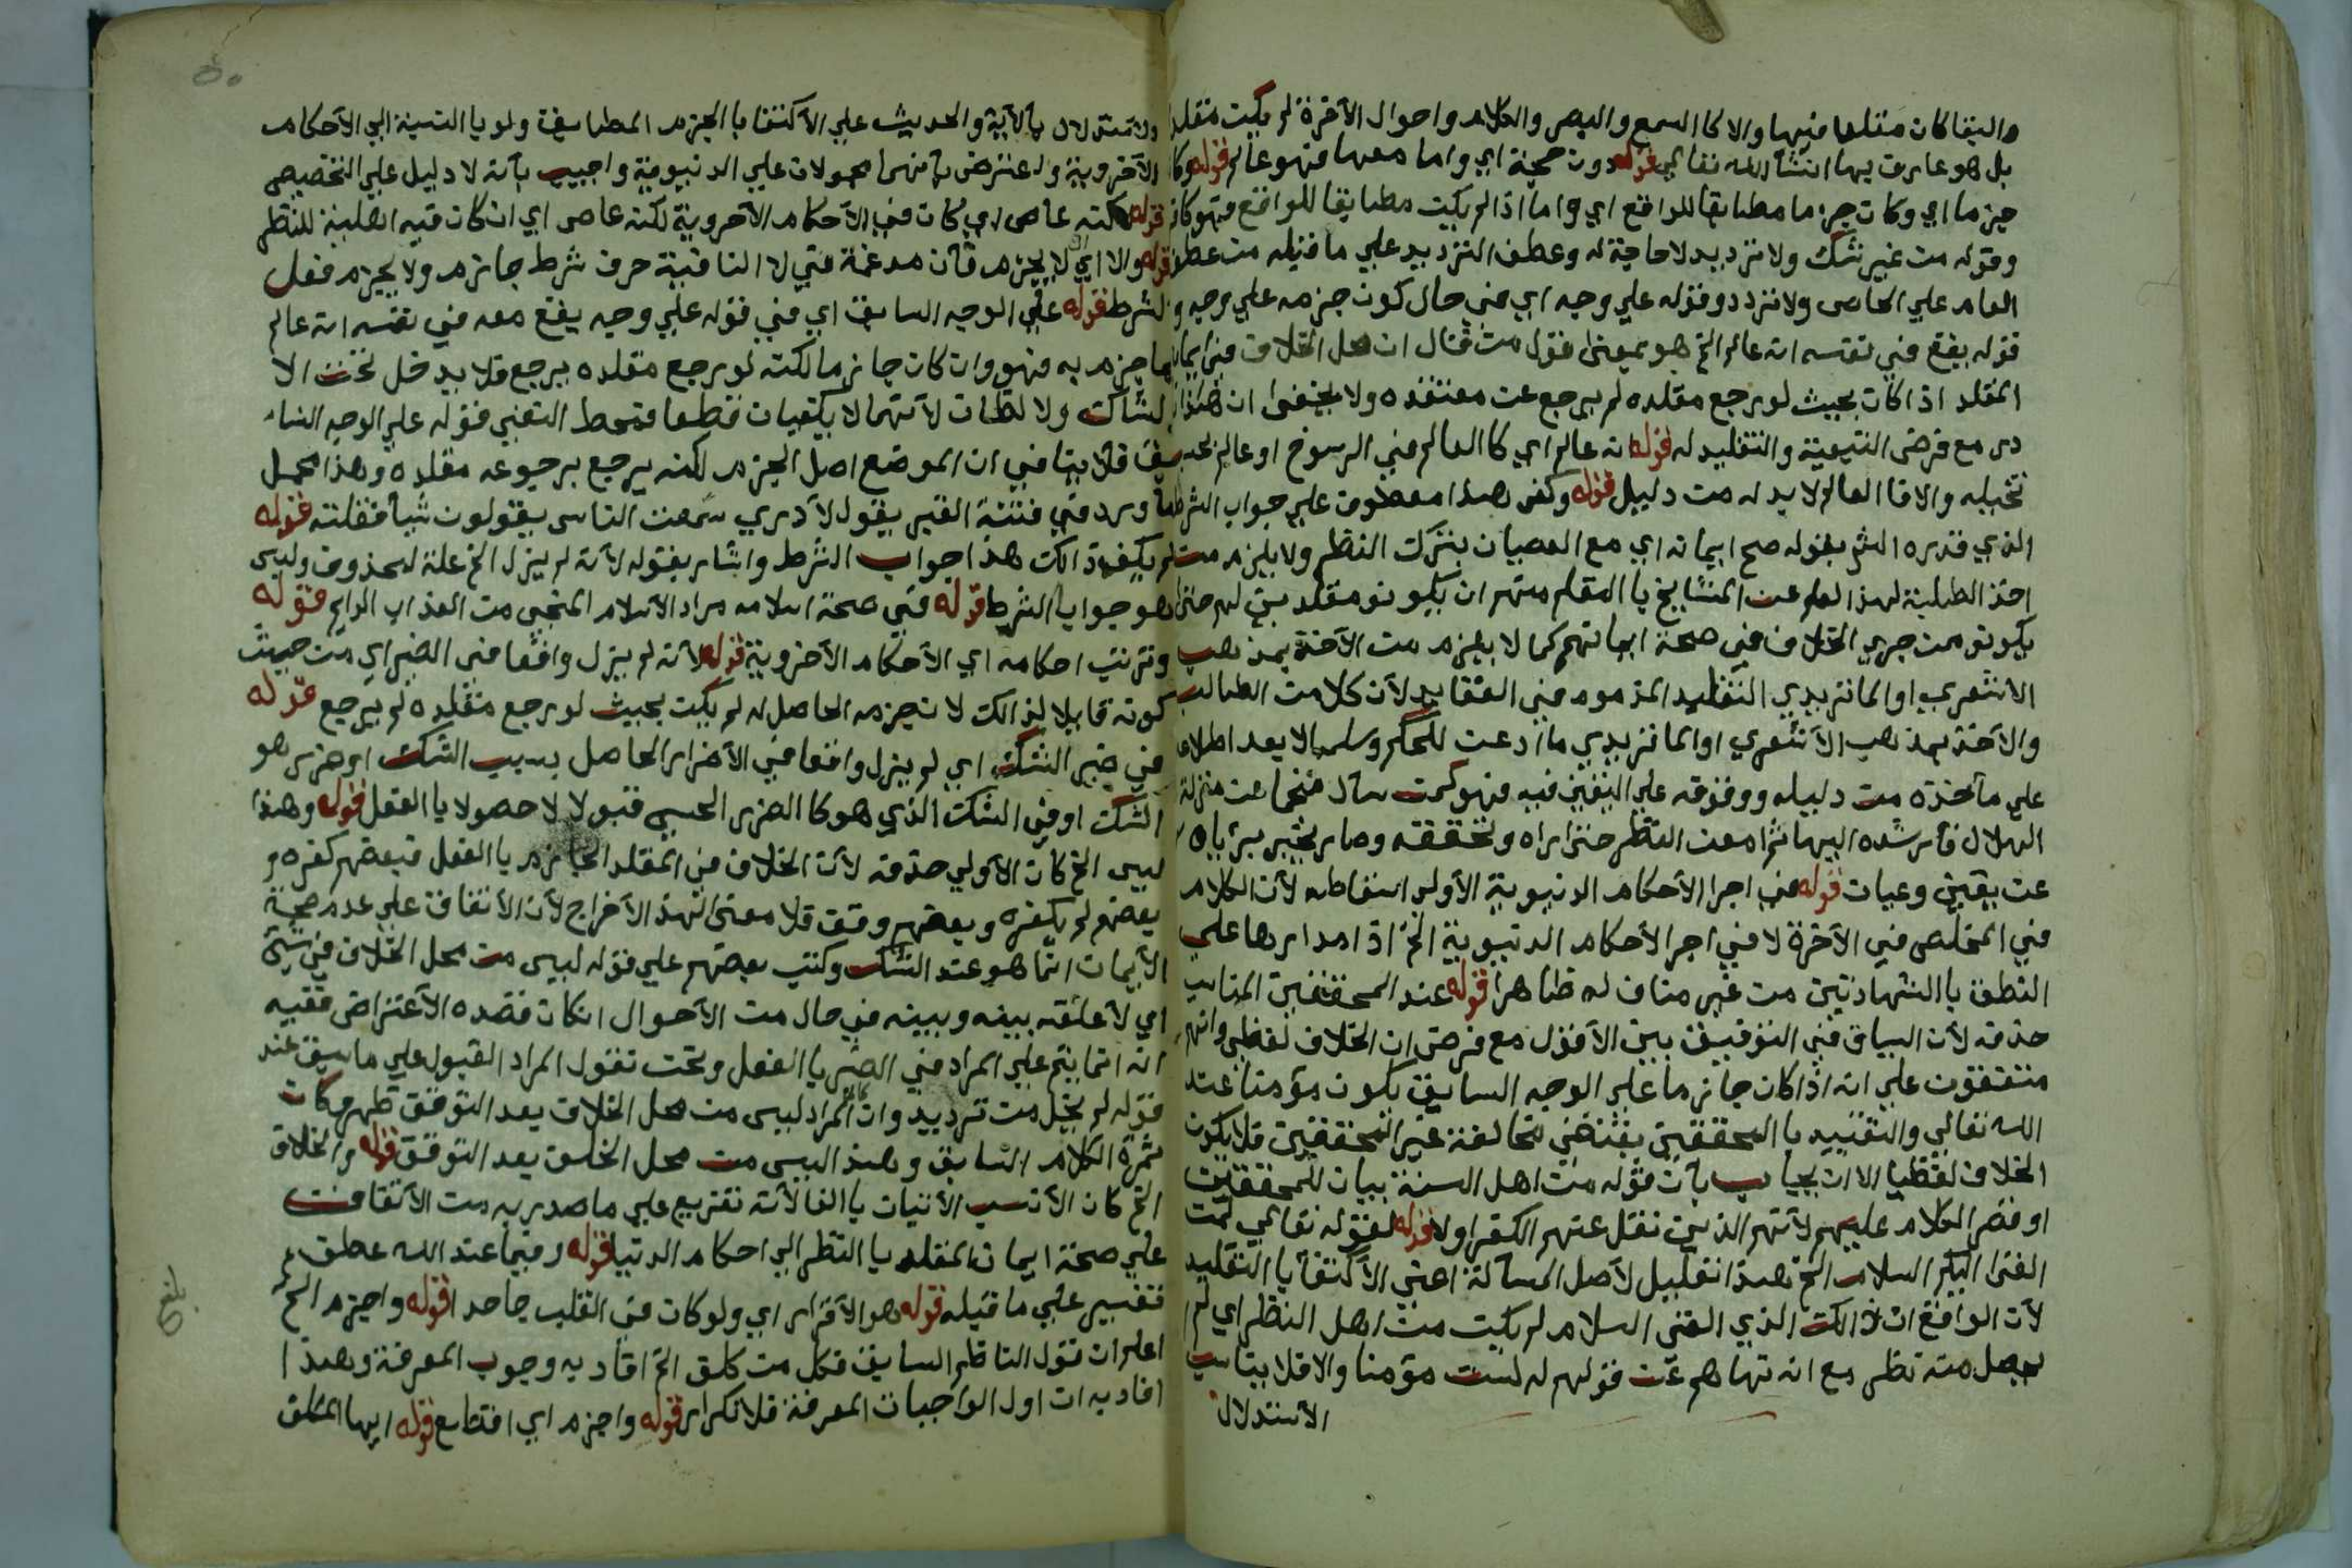 والبقا كان مقلدا فيها والا كا السمع والبصر والكلام واحوال الآخرة لم يكن مقلدا
بل هو عارف بها انشا الله تعالي قوله دون حجة اي واما معها فهو عالم قوله وكا
جزما اي وكان جزما مطابقا للواقع اي واما اذا لم يكن مطابقا للواقع فهو كافر
وقوله من غير شك ولا ترديد لا حاجة له وعطف الترديد علي ما قبله من عطف
العام علي الخاص ولا تردد وقوله علي وجه اي في حال كون جزمه علي وجه و
قوله يقع في نفسه انه عالم الخ هو بمعنى قول من قال ان محل الخلاف في ايمان
المقلد اذا كان بحيث لو رجع مقلده لم يرجع عن معتقده ولا يخفى ان هذا
مع فرض التبعية والتقليد له قوله انه عالم اي كا العالم في الرسوخ او عالم بحسب
تخيله والا فا العالم لا بد له من دليل قوله وكفى هذا معطوف علي جواب الشرط
الذي قدره الش بقوله صح ايمانه اي مع العصيان بترك النظر ولا يلزم من
اخذ الطلبة لهذا العلم عن المشايخ با التعلم منهم ان يكونو مقلدين لهم حتى
يكونو ممن جري الخلاف في صحة ايمانهم كما لا يلزم من الآخذ بمذهب
الاشعري او الماتريدي التقليد المذموم في العقايد لأن كلا من الطالب
والآخذ بمذهب الأشعري او الماتريدي ما اذعن للحكم وسلمه الا بعد اطلاعه
علي مأخذه من دليله ووقوفه علي اليقين فيه فهو كمن سأل منجما عن منزلة
الهلال فأرشده اليها ثم امعن النظر حتى اراه وتحققه وصار يخبر برئياه
عن يقين وعيان قوله في اجرا الأحكام الدنيوية الأولى اسقاطه لأن الكلام
في المخلص في الآخرة لا في اجرا الأحكام الدنيوية الخ اذ مدارها علي
النطق با الشهادتين من غير مناف له ظاهرا قوله عند المحققين المناسب
حذفه لأن السياق في التوفيق بين الأقوال مع فرض ان الخلاف لفظي وانهم
متفقون علي انه اذا كان جازما علي الوجه السابق يكون مؤمنا عند
الله تعالي والتقييد با المحققين يقتضي مخالفة غير المحققين فلا يكون
الخلاف لفظيا الا ان يجاب بأن قوله من اهل السنة بيان للمحققين
او قصر الكلام عليهم لأنهم الذين نقل عنهم الكفر اولا قوله لقوله تعالي لمن
القى اليكم السلام الخ هذا تعليل لأصل المسألة اعني الأكتفا با التقليد
لأن الواقع ان ذالك الذي القى السلام لم يكن من اهل النظر اي لم
يحصل منه نظر مع انه تعالى نهاهم عن قولهم له لست مؤمنا والا فلا يناسب
الأستدلال
٥٠
والأستدلال بالآية والحديث علي الأكتفا با الجزم المطابق ولو با النسبة الي الأحكام
الآخروية واعترض بأنهما محمولان علي الدنيوية واجيب بأنه لا دليل علي التخصيص
قوله لكنه عاص اي كان في الأحكام الآخروية لكنه عاص اي ان كان فيه اهلية للنظر
قوله والا اي لا يجزم فأن مدغمة في لا النافية حرف شرط جازم ولا يجزم فعل
الشرط قوله علي الوجه السابق اي في قوله علي وجه يقع معه في نفسه انه عالم
بما جزم به فهو وان كان جازما لكنه لو رجع مقلده يرجع فلا يدخل تحت الا
الشاك ولا الظان لأنهما لا يكفيان قطعا فمحط النفي قوله علي الوجه السا
بق فلا ينافي ان الموضع اصل الجزم لكنه يرجع برجوع مقلده وهذا محمل
ما ورد في فتنة القبر يقول لآ دري سمعت الناس يقولون شيأ فقلته قوله
لم يكف ذالك هذا جواب الشرط واشار بقوله لأنه لم يزل الخ علة لمحذوف وليس
هو جوابا الشرط قوله في صحة اسلامه مراد الأسلام المنجي من العذاب الدايم قوله
وترتب احكامه اي الأحكام الأخروية قوله لأنه لم يزل واقعا في الضر اي من حيث
كونه قابلا لذالك لان جزمه الحاصل له لم يكن بحيث لو رجع مقلده لم يرجع قوله
في ضير الشك اي لم يزل واقعا في الأضرار الحاصل بسبب الشك او ضرر هو
الشك او في الشك الذي هو كا الضرر الحسي قبولا لا حصولا با الفعل قوله وهذا
ليس الخ كان الأولي حذفه لأن الخلاف في المقلد الجازم با الفعل فبعضهم كفره و
بعضهم لم يكفره وبعضهم وفق فلا معنى لهذا الأخراج لأن الأتفاق علي عدم صحة
الأيمان انما هو عند الشك وكتب بعضهم علي قوله ليس من محل الخلاف في شيئ
اي لآ علقه بينه وبينه في حال من الأحوال ان كان قصده الأعتراض ففيه
انه انما يتم علي المراد في الضر با الفعل ونحن نقول المراد القبول علي ما سبق عند
قوله لم يخل من ترديد وان كان المراد ليس من محل الخلاف بعد التوفق ظهر وكان
ثمرة الكلام السابق وهذ اليس من محل الخلف بعد التوفق قوله والخلاف
الخ كان الأنسب الأتيان با الفا لأنه تفريع علي ما صدر به من الأتفاق
علي صحة ايمان المقلد با النظر الي احكام الدنيا قوله وفيما عند الله عطف
تفسير علي ما قبله قوله هو الأقرار اي ولو كان في القلب جاحدا قوله واجزم الخ
اعلم ان قول الناظم السابق فكل من كلف الخ افاد به وجوب المعرفة وهذا
افاد به ان اول الواجبات المعرفة فلا تكرار قوله واجزم اي اقطع قوله ايها المكلف